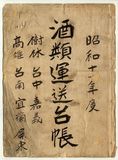 昭和十一年度
酒類運送台帳
樹林 台中 嘉義
高雄 台南 宜蘭 屏東